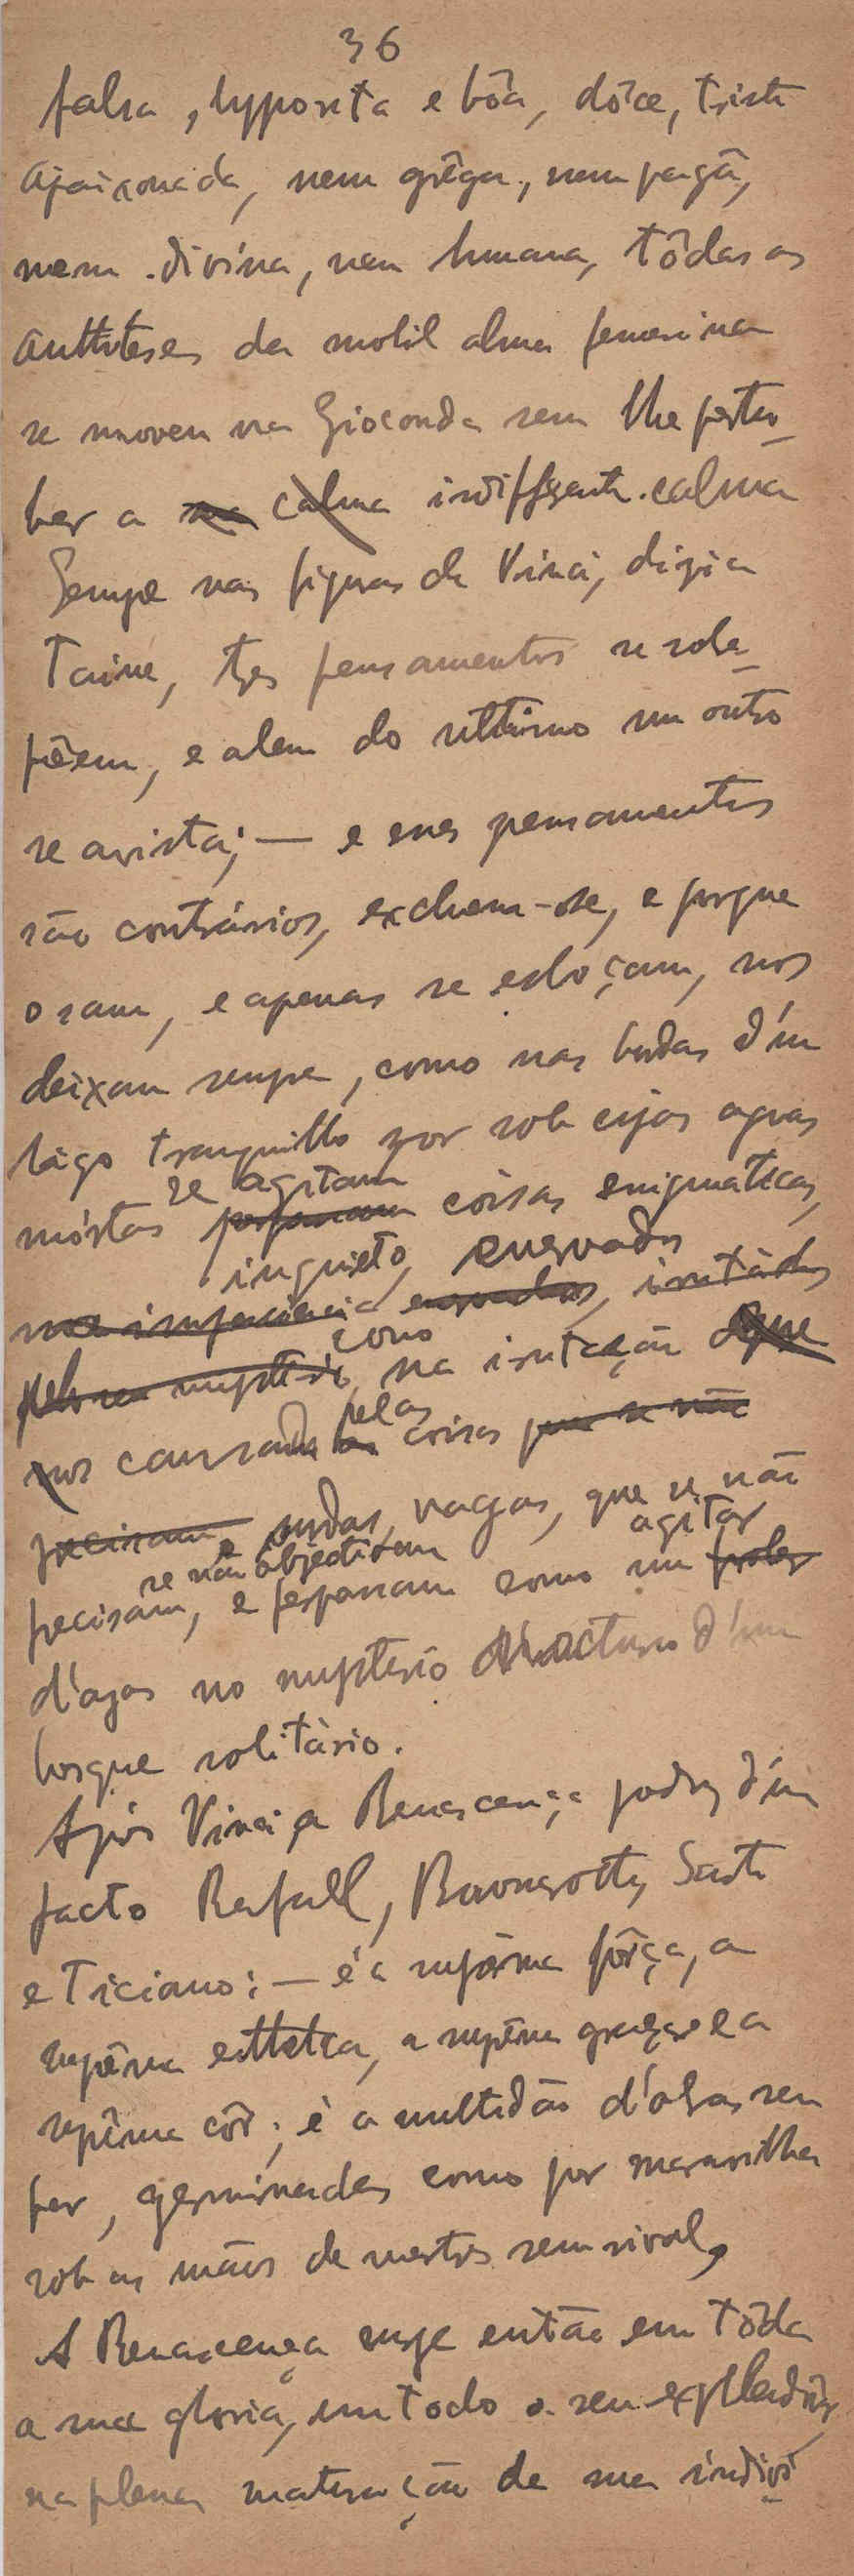 36
falsa, hyppocrita e bôa, dôce, triste
apaixonada, nem grêga, nem pagã,
nem divina, nem humana, tôdas as
antitheses da mobil alma feminina
se movem na Gioconda sem lhe pertur-
bar a sua calma indifferente calma
Sempre nas figuras de Vinci, dizia
Taine, tres pensamentos se sobre-
põem, e alem do ultimo um outro
se avista; — e esses pensamentos
são contrários, excluem-se, e porque
o sam, e apenas se esboçam, nos
deixam sempre, como nas bordas d'um
lágo tranquillo por sob cujas aguas
mórtas se agitam perpassam coisas enigmaticas,
inquieto, enervados
na impaciencia enervados, irritados
pelo seu mysterio como na irritação que
nos causada pelas coisas que se não
precisam e surdas, vagas, que se não
precisam, se não objectivam e perpassam como um agitar
d'azas no mysterio d'um
bosque solitário.
Após Vinci a Renascença produz d'um
facto Rafael, Buonarotti, Sarto
e Ticiano: — é a suprêma fôrça, a
suprêma esthetica, a suprêma graça e a
suprêma côr; é a multidão d'obras sem
par, germinadas como por maravilha
sob as mãos de mestres sem rival,
A Renascença surge então em tôda
a sua gloria, em todo o seu explendôr,
na plena maturação de sua indivi-